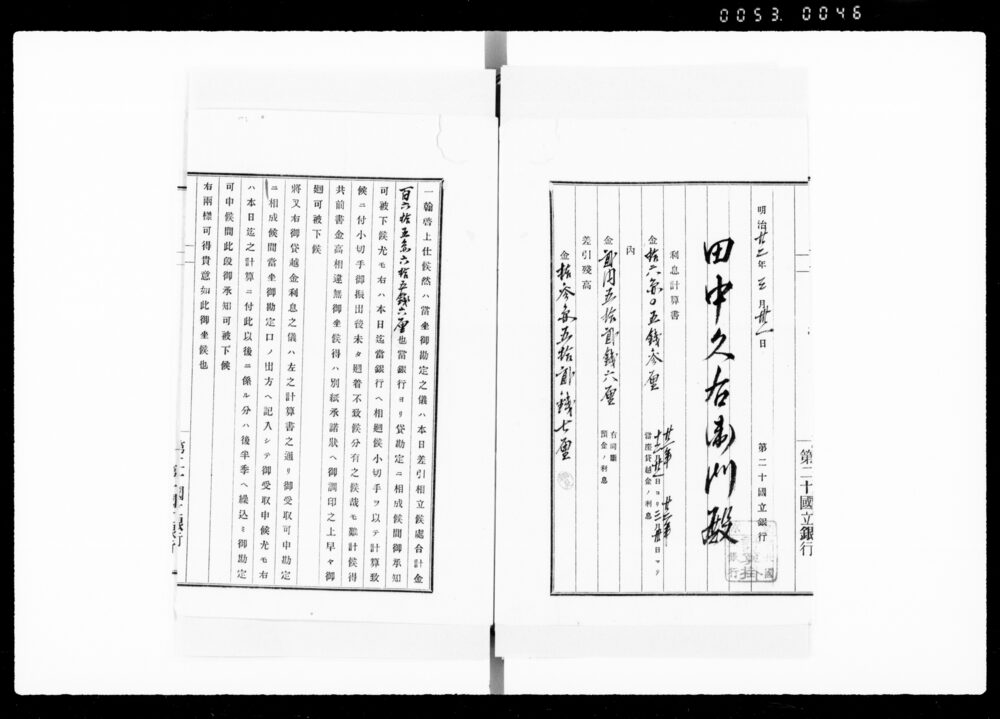 0053. 0046
第二十國立銀行
明治廿二年三月廿一日
第二十國立銀行
田中久右衛門殿
利息計算書
金拾六円〇五錢参厘
廿一年十二月廿一日ヨリ廿二年三月廿日マテ
當座貸越金ノ利息
内
金貳円五拾貳錢六厘
右同斷
預金ノ利息
差引殘高
金拾参円五拾貳錢七厘
一翰啓上仕候然ハ當坐御勘定之儀ハ本日差引相立候處合計金
百六拾五円六拾五錢六厘也當銀行ヨリ貸勘定ニ相成候間御承知
可被下候尤モ右ハ本日迄當銀行ヘ相廻候小切手ヲ以テ計算致
候ニ付小切手御振出後未タ廻着不致候分有之候哉モ難計候得
共前書金高相違無御坐候得ハ別紙承諾狀ヘ御調印之上早々御
廻可被下候
將又右御貸越金利息之儀ハ左之計算書之通リ御受取可申勘定
ニ相成候間當坐御勘定口ノ出方ヘ記入シテ御受取申候尤モ右
ハ本日迄之計算ニ付此以後ニ係ル分ハ後半季ヘ繰込ミ御勘定
可申候間此段御承知可被下候
右兩樣可得貴意如此御坐候也